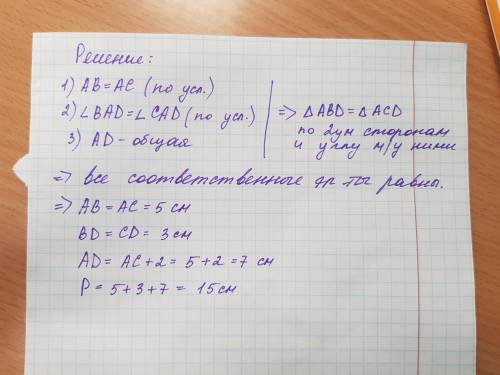 Решение:
1) AB = AC (по усл.)
2) ∠BAD = ∠CAD (по усл.)
3) AD - общая
=> △ABD = △ACD
по 2ум сторонам
и углу м/у ними
=> все соответственные эл-ты равны.
=> AB = AC = 5 см
BD = CD = 3 см
AD = AC + 2 = 5 + 2 = 7 см
P = 5 + 3 + 7 = 15 см